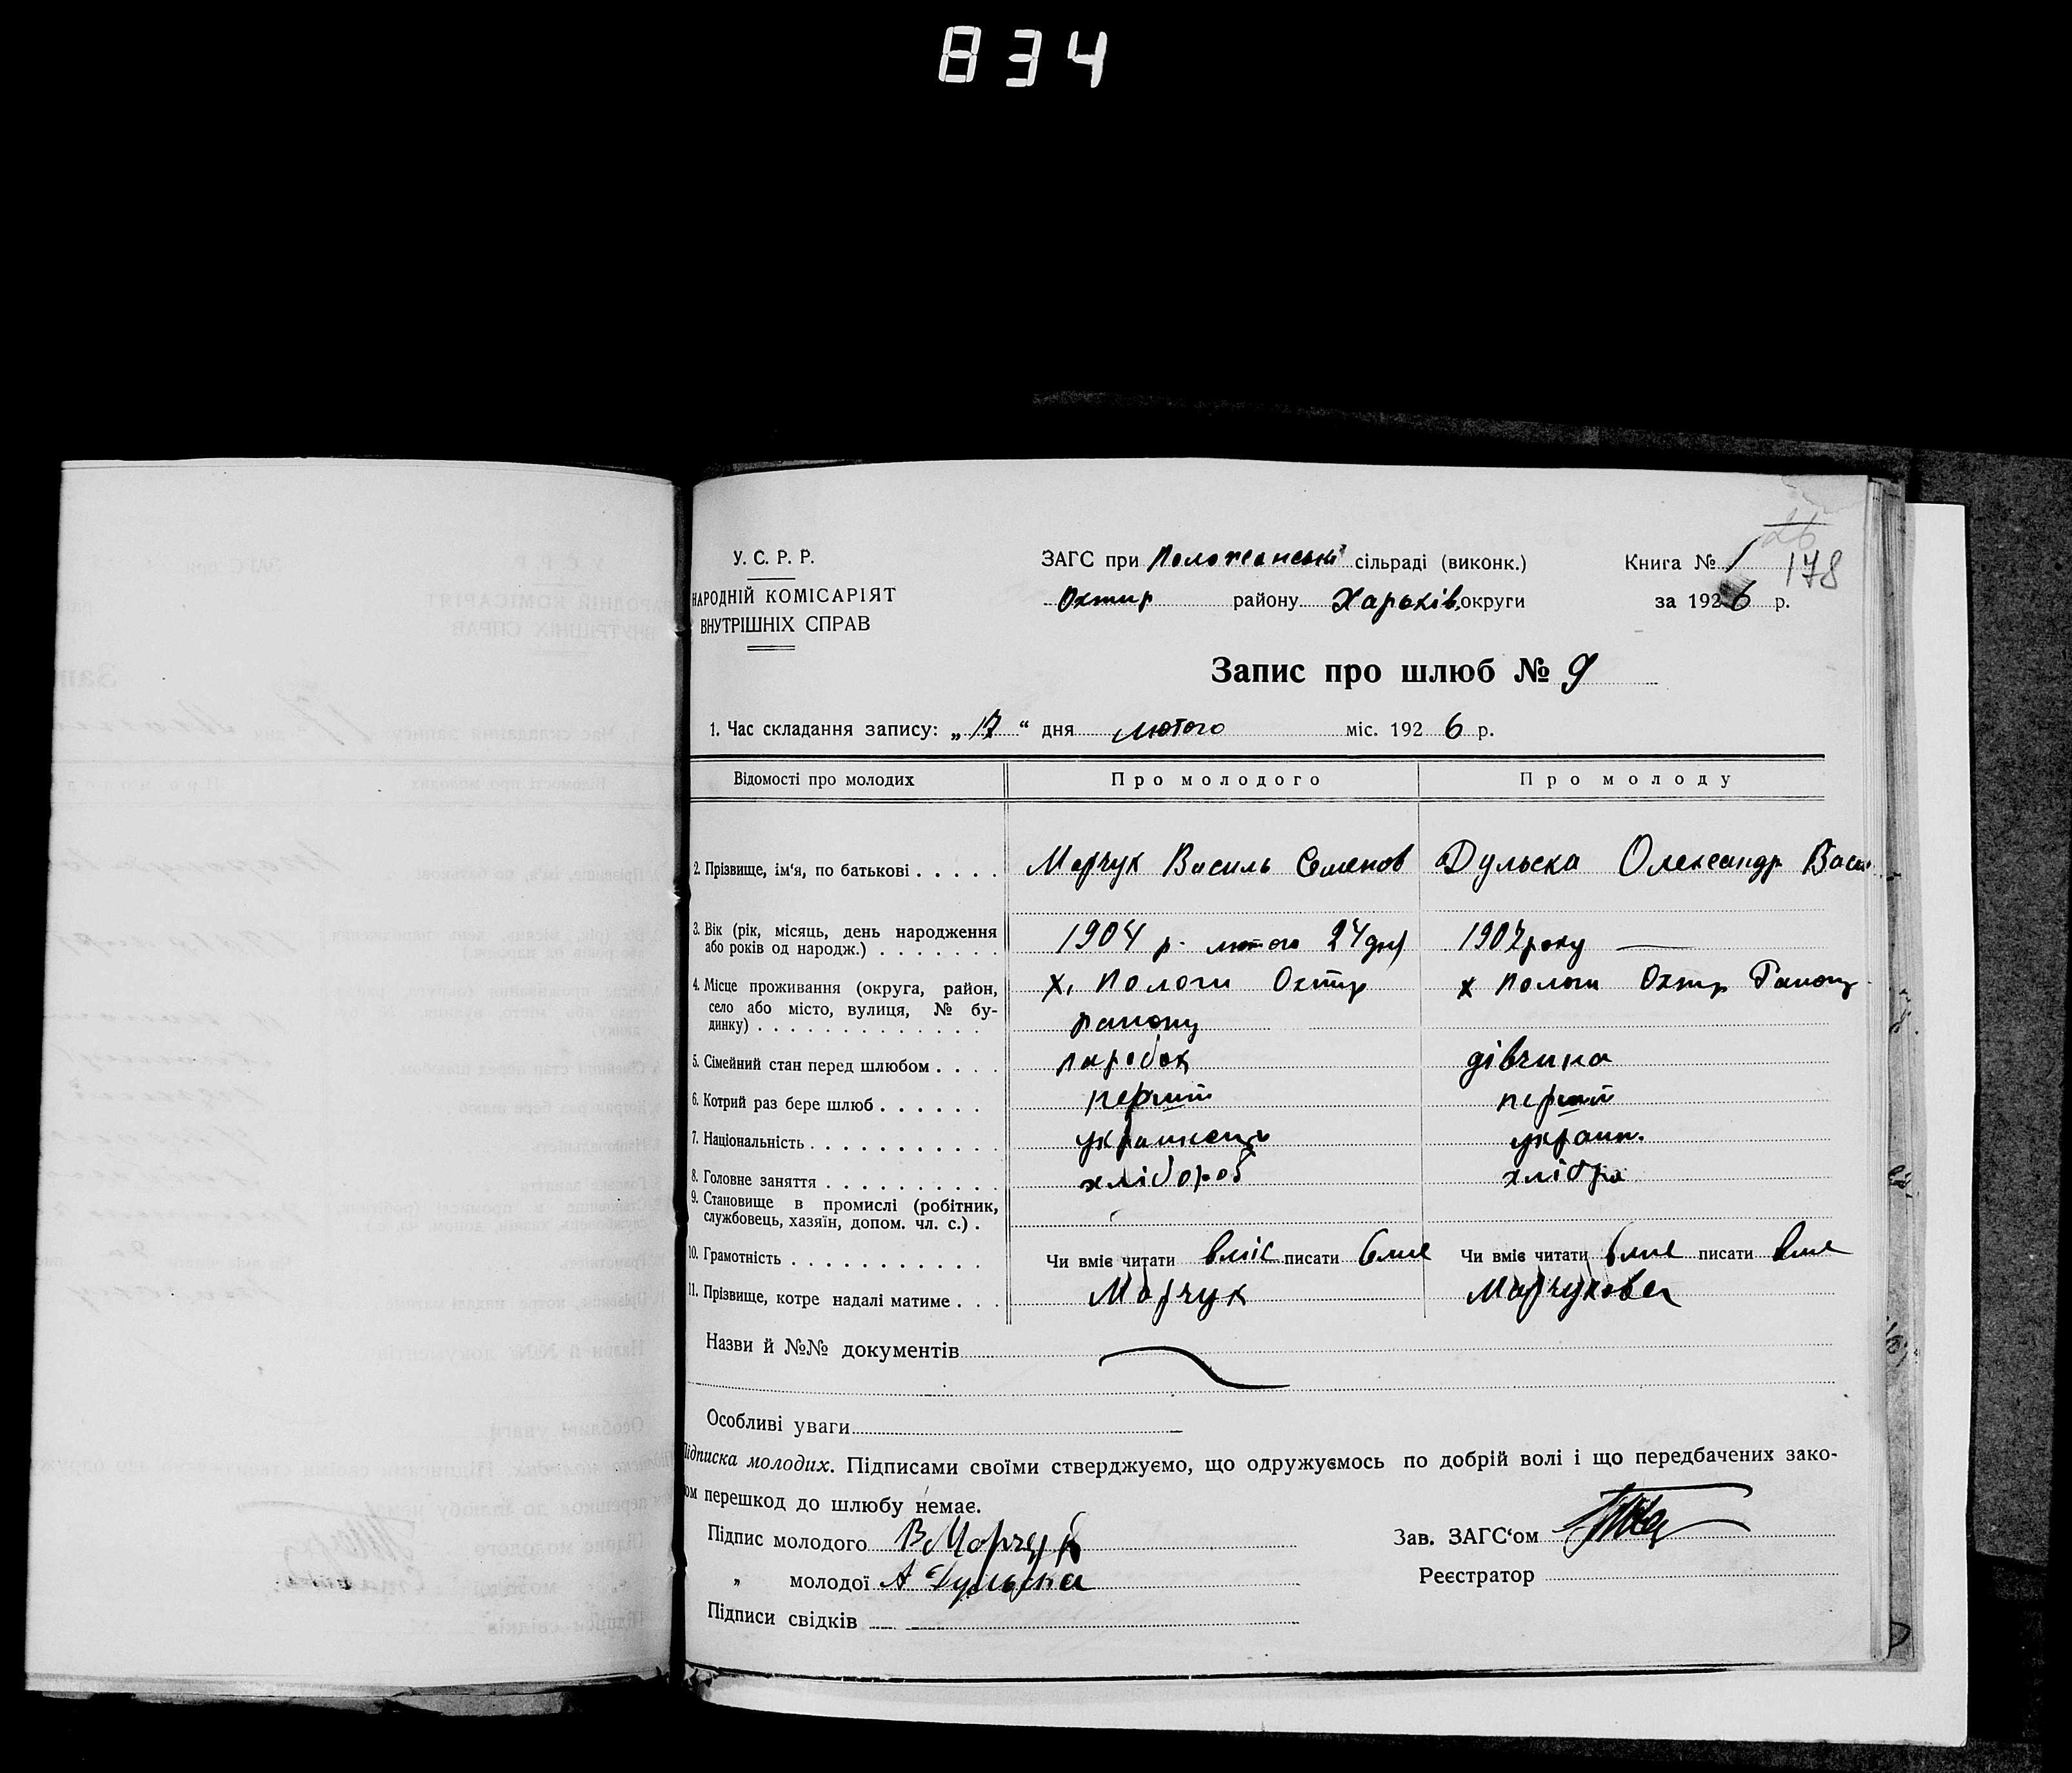 834
У. С. Р. Р.
НАРОДНІЙ КОМІСАРІЯТ
ВНУТРІШНІХ СПРАВ
ЗАГС при сільраді (виконк.)
Охтир району Харьків. округи
Книга № 1
26
178
за 1926 р.
Запис про шлюб № 9
1. Час складання запису: „17“ дня лютого міс. 1926 р.
Відомості про молодих Про молодого Про молоду
2. Прізвище, ім‘я, по батькові . . . . . Марчук Василь Семенов Дульска Олександр Васи
3. Вік (рік, місяць, день народження 1904 р. лютого 24 дня 1907 року —
або років од народж.) . . . . . . .
4. Місце проживання (округа, район, х. Пологи Охтир х Пологи Охтир Району
село або місто, вулиця, № бу- району
динку) . . . . . . . . . . . . . .
5. Сімейний стан перед шлюбом . . . . паробок дівчина
6. Котрий раз бере шлюб . . . . . . перший перший
7. Національність . . . . . . . . . . . украинець украин.
8. Головне заняття . . . . . . . . . . хлібороб
9. Становище в промислі (робітник,
службовець, хазяїн, допом. чл. с.) .
10. Грамотність . . . . . . . . . . . Чи вміє читати вміє писати вміє Чи вміє читати вміє писати вміє
11. Прізвище, котре надалі матиме . . . Марчук Марчукова
Назви й №№ документів
Особливі уваги
Підписка молодих. Підписами своїми стверджуємо, що одружуємось по добрій волі і що передбачених зако-
ом перешкод до шлюбу немає.
Підпис молодого В Марчук
Зав. ЗАГС‘ом
„ молодої А Дульска
Реєстратор
Підписи свідків